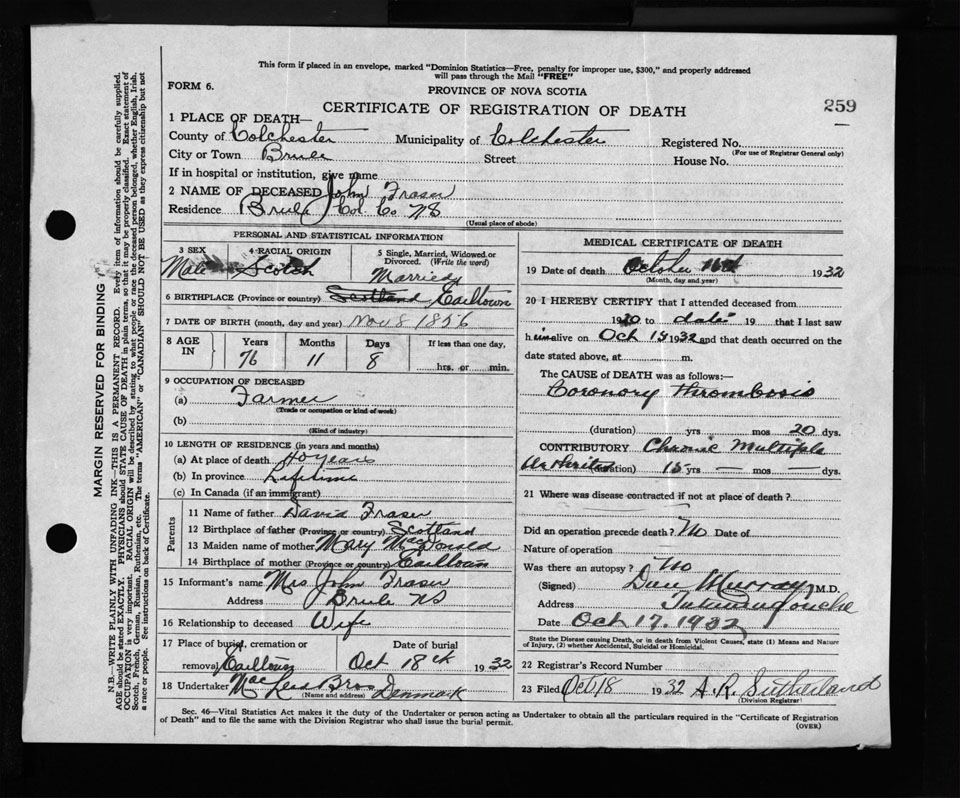 This form if placed in an envelope, marked "Dominion Statistics—Free, penalty for improper use, $300," and properly addressed
will pass through the Mail "FREE"
FORM 6.
PROVINCE OF NOVA SCOTIA
CERTIFICATE OF REGISTRATION OF DEATH
259
1 PLACE OF DEATH—
County of Colchester Municipality of Colchester Registered No.
(For use of Registrar General only)
City or Town Brule Street House No.
If in hospital or institution, give name
2 NAME OF DECEASED John Fraser
Residence Brule Col. Co NS
(Usual place of abode)
PERSONAL AND STATISTICAL INFORMATION
3 SEX 4 RACIAL ORIGIN 5 Single, Married, Widowed or Divorced. (Write the word)
Male Scotch Married
6 BIRTHPLACE (Province or country) Scotland Earltown
7 DATE OF BIRTH (month, day and year) Nov 8 1856
8 AGE IN Years Months Days If less than one day,
76 11 8 hrs. or min.
9 OCCUPATION OF DECEASED
(a) Farmer
(Trade or occupation or kind of work)
(b)
(Kind of industry)
10 LENGTH OF RESIDENCE (in years and months)
(a) At place of death 40 years
(b) In province Lifetime
(c) In Canada (if an immigrant)
Parents
11 Name of father David Fraser
12 Birthplace of father (Province or country) Scotland
13 Maiden name of mother Mary MacDonald
14 Birthplace of mother (Province or country) Earltown
15 Informant's name Mrs John Fraser
Address Brule NS
16 Relationship to deceased Wife
17 Place of burial, cremation or removal Earltown
Date of burial Oct 18th 1932
18 Undertaker MacLeod Bros Denmark
(Name and address)
MEDICAL CERTIFICATE OF DEATH
19 Date of death October 16th 1932
(Month, day and year)
20 I HEREBY CERTIFY that I attended deceased from
1920 to date 19 that I last saw
him alive on Oct 15 1932 and that death occurred on the
date stated above, at m.
The CAUSE of DEATH was as follows:—
Coronory Thrombosis
(duration) yrs mos 20 dys.
CONTRIBUTORY Chronic Multiple
Arthritis (duration) 15 yrs — mos — dys.
21 Where was disease contracted if not at place of death?
Did an operation precede death? No Date of
Nature of operation
Was there an autopsy? No
(Signed) Dan Murray M.D.
Address Tatamagouche
Date Oct 17. 1932
State the Disease causing Death, or in death from Violent Causes, state (1) Means and Nature
of Injury, (2) whether Accidental, Suicidal or Homicidal.
22 Registrar's Record Number
23 Filed Oct 18 1932 A. R. Sutherland
(Division Registrar)
Sec. 46—Vital Statistics Act makes it the duty of the Undertaker or person acting as Undertaker to obtain all the particulars required in the "Certificate of Registration
of Death" and to file the same with the Division Registrar who shall issue the burial permit.
(OVER)
MARGIN RESERVED FOR BINDING
N.B.—WRITE PLAINLY WITH UNFADING INK—THIS IS A PERMANENT RECORD. Every item of information should be carefully supplied.
AGE should be stated EXACTLY. PHYSICIANS should STATE CAUSE OF DEATH in plain terms, so that it may be properly classified. Exact statement of
OCCUPATION is very important. RACIAL ORIGIN will be described by stating to what people or race the deceased person belonged, whether English, Irish,
Scotch, French, German, Russian, Ruthenian, etc. The terms "AMERICAN" or "CANADIAN" SHOULD NOT BE USED as they express citizenship but not
a race or people. See instructions on back of Certificate.